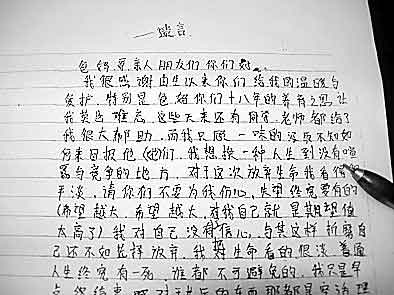 —遗言
爸妈亲人朋友们你们好
我很感谢由生以来你们给我的温暖与
爱护,特别是爸妈你们十八年的养育之恩让
我莫齿难忘,这些天来还有同学,老师都给了
我很大帮助,而我只顾一味的 不知如
何来回报他(她)们,我想换一种人生到没有喧
嚣与竞争的地方,对于这次放弃生命我看得
平淡,请你们不要为我伤心,失望终究要有的
(希望越大,希望越大,对我自己就是期望值
太高了)我对自己没有信心,与其这样折磨自
己还不如选择放弃,我对生命看的很淡 普通
人生终究有一死,谁都不可避免的,我只是早
点 结束